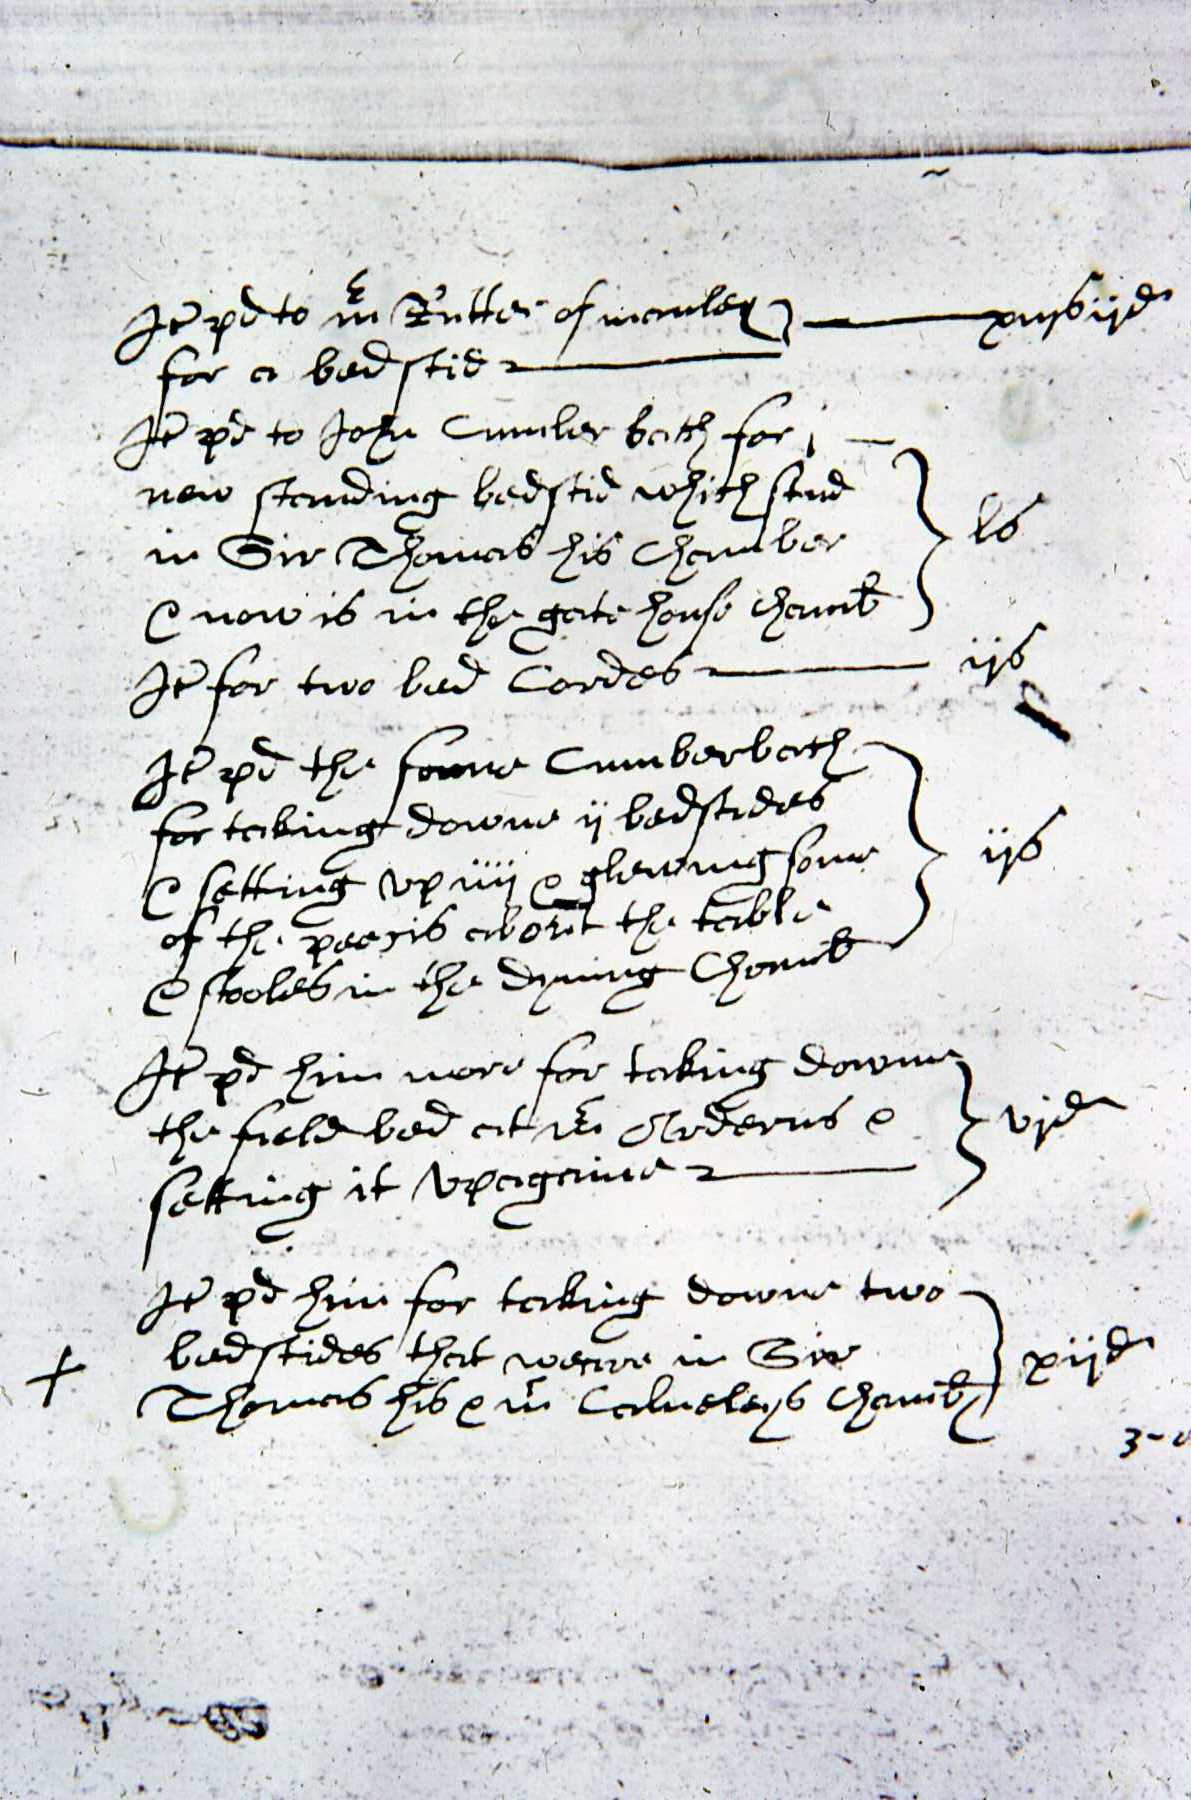 It pd to mr Rutter of manley xiijs iijd
for a bedstid
It pd to John Cumberbach for j
new standing bedstid which stud
in Sir Thomas his Chamber ls
& now is in the gate house chamb
It for two bed Cordes ijs
It pd the same Cumberbach
for taking downe ij bedstides
& setting vp iiij & glewing some ijs
of the peecis about the table
& stooles in the dyning Chamb
It pd him more for taking downe
the field bed at mr Arderns & vjd
setting it vp againe
It pd him for taking downe two
bedstides that weare in Sir xijd
Thomas his & mr Calueleys chamb
3-